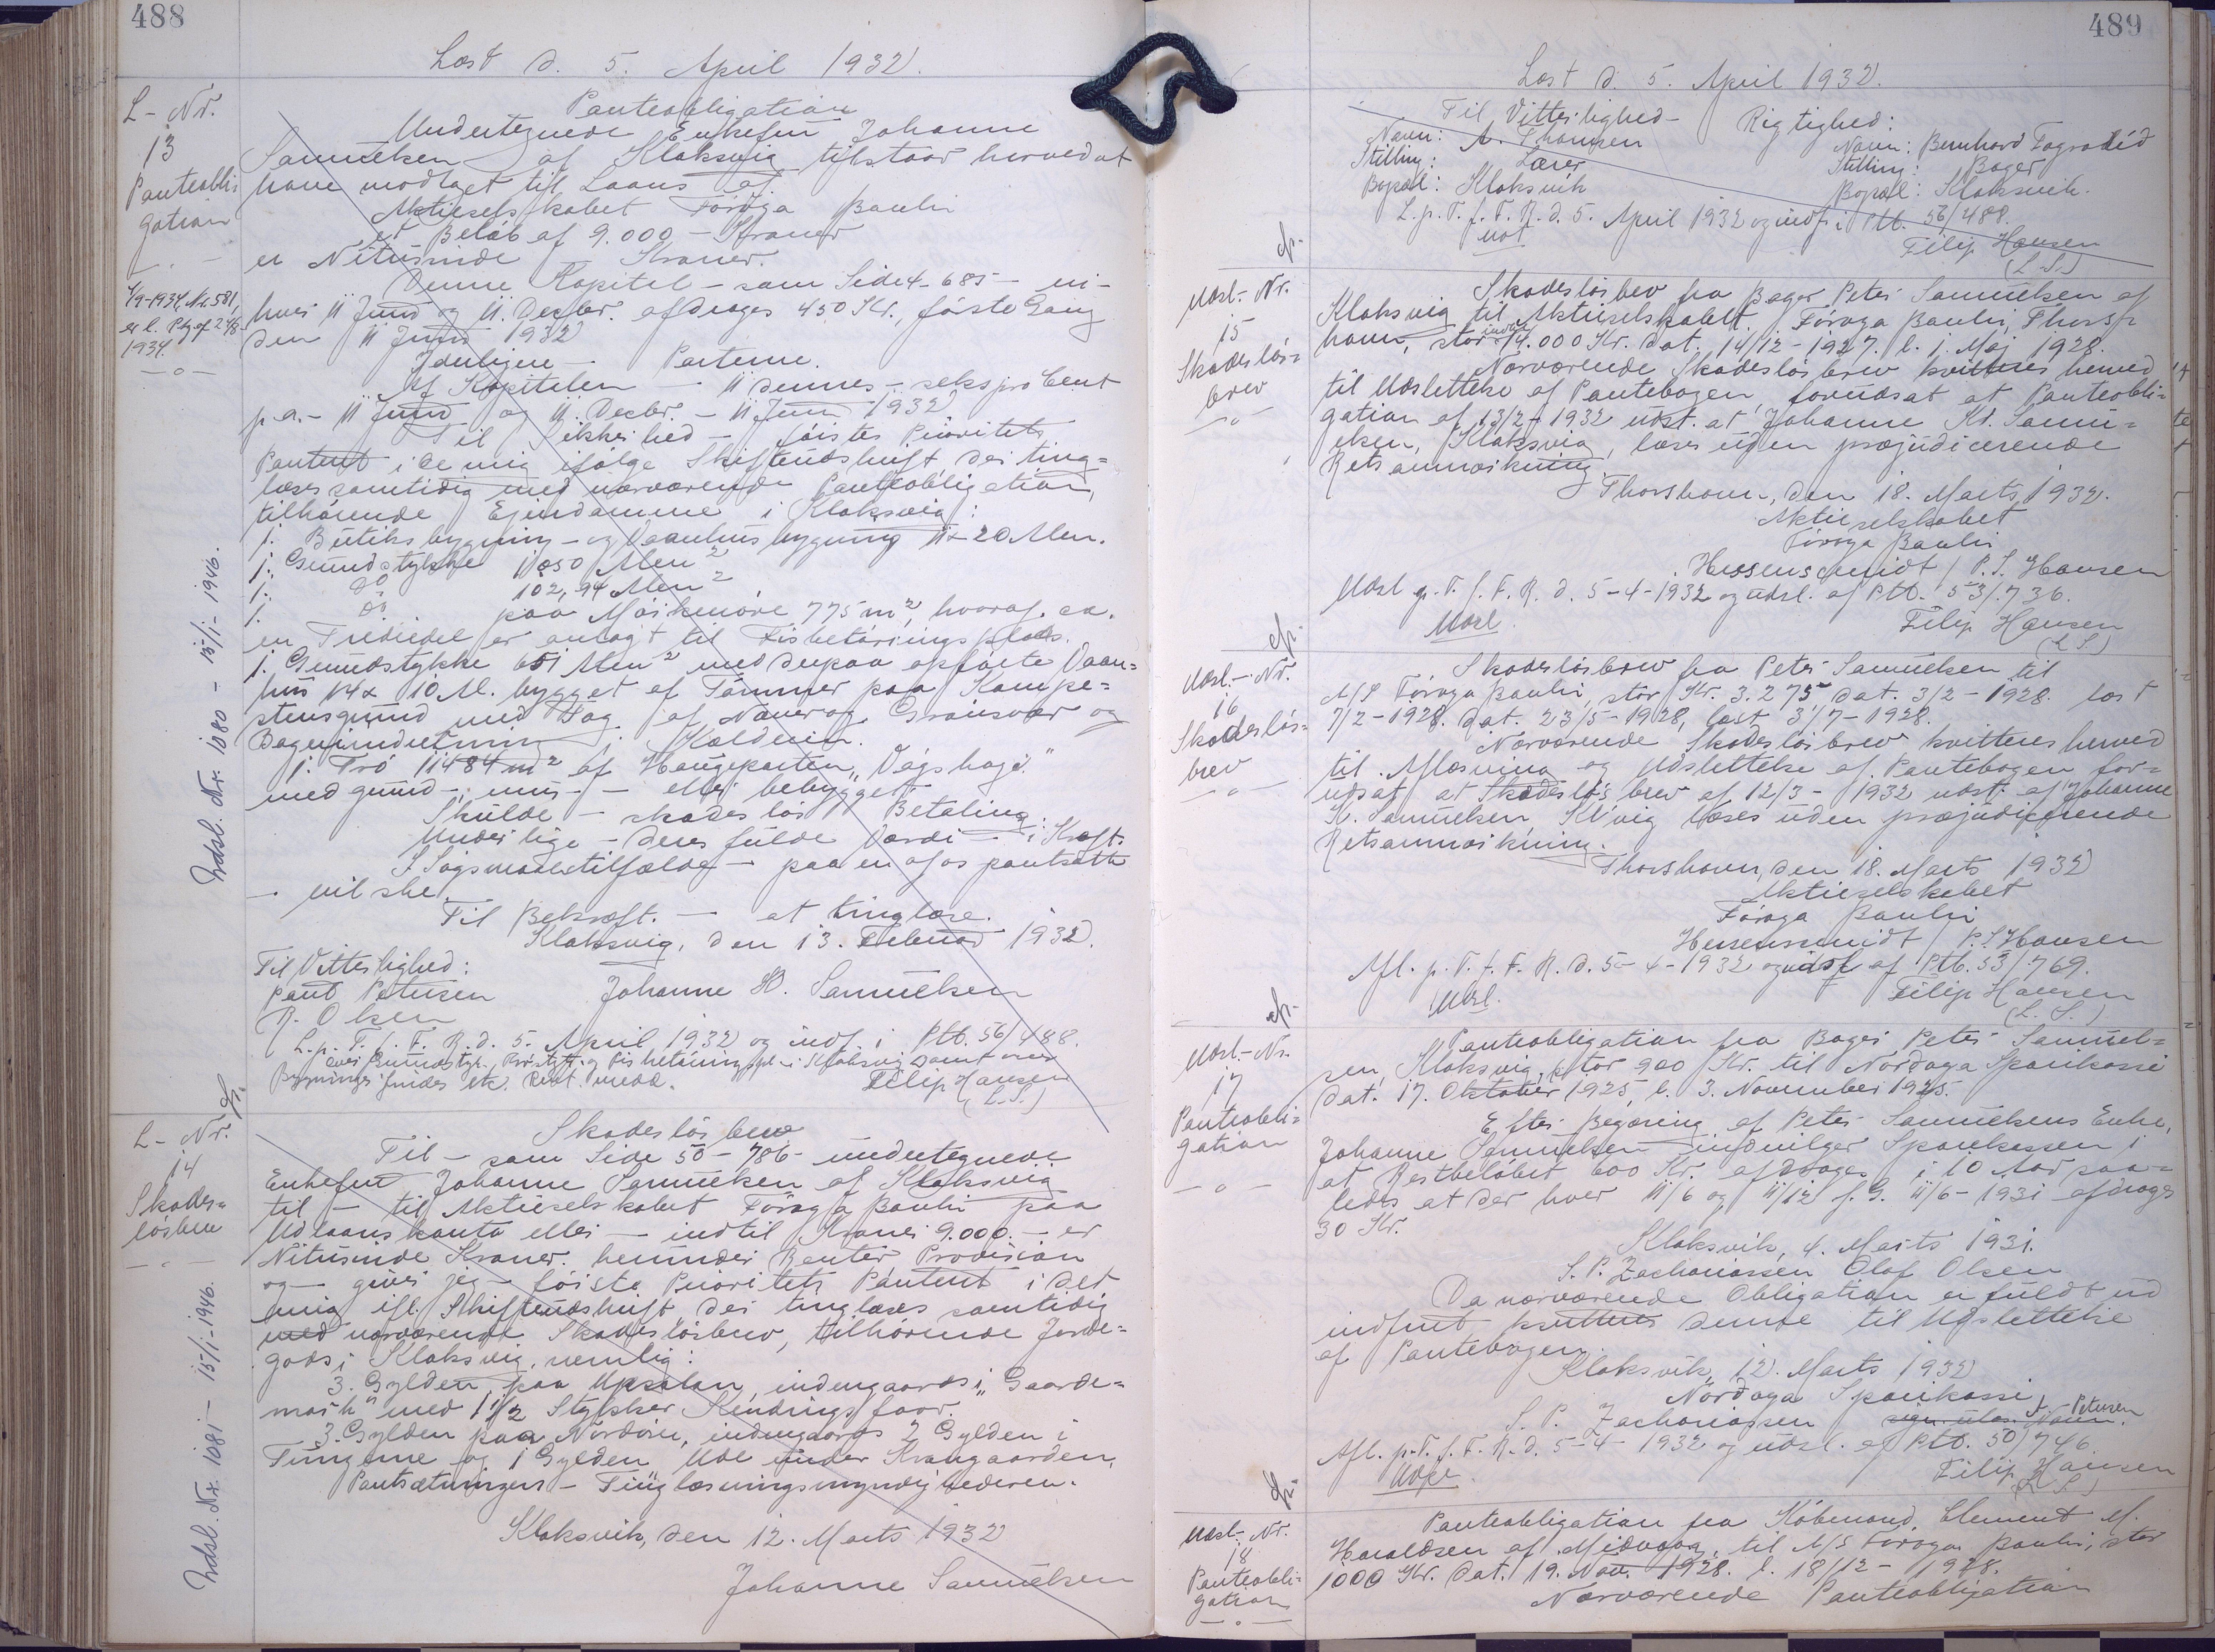 488
Læst d. 5. April 1932.
L- Nr.
13
Panteobli-
gation
4/9-1934, Nr. 581,
er l. Ptg. af 24/8-
1934.
Indsl. Nr. 1080 - 15/1- 1946.
Panteobligation
Undertegnede Enkefru Johanne
Samuelsen af Klaksvig tilstaar herved at
have modtaget til Laans af
Aktieselskabet Föroya Banki
et Beløb af 9.000 - Kroner
er Nitusinde - Kroner.
Denne Kapitel - som Side 4-685 - en-
hver 11 Juni og 11. Decbr. afdrages 450 Kr., første Gang
den 11 Juni 1932
Iøvrigen - Parterne.
af Kapitalen - 11 dennes - seks pro Cent
p.a. - 11 Juni og 11. Decbr. - 11 Juni 1932
Til Sikkerhed - første Prioritets
Panteret i de mig ifølge Skifteudskrift, der ting=
læses samtidig med nærværende Panteobligation,
tilhørende Ejendomme i Klaksvig:
1. Butiksbygning - og Vaanhusbygning 11 x 20 Alen.
1. Grundstykke 1050 Alen²
1. do 102,94 Alen²
1. do. paa Mýrkenøre 775 m², hvoraf ca.
en Trediedel er anlagt til Fisketørringsplads.
1. Grundstykke 651 Alen² med derpaa opførte Vaan=
hus 14 x 10 Al. bygget af Tømmer paa Kampe=
stensgrund med Tag af Næver og Grønsvær og
Bageriindretning. Kælderen.
1. Trö 11484 m² af Haugeparten "Vágshagi"
med grund -, mur - - eller bebygget
Skulde - skadesløs Betaling.
Under lige - deres fulde Værdi - i Kraft.
I Søgsmaalstilfælde - paa en af os pantsatte
- vil ske.
Til Bekræft. - at tinglæse.
Klaksvig, den 13. Februar 1932.
Til Vitterlighed:
Poul Petersen Johanne H. Samuelsen
R. Olsen
L. p. T. f. F. R. d. 5. April 1932 og indf. i Ptb. 56/488.
Filip Hansen
(L.S.)
L- Nr.
14
Skades=
løsbrev
Indsl. Nr. 1081 - 15/1-1946.
Skadesløsbrev
Til - som Side 50-786 - undertegnede
Enkefru Johanne Samuelsen af Klaksvig
til - til Aktieselskabet Föroya Banki paa
Udlaanskonto eller - indtil Kroner 9.000. - er
Nitusinde Kroner. herunder Renter Provision
og - giver jeg - første Prioritets Panteret i det
mig ifl. Skifteudskrift, der tinglæses samtidig
med nærværende Skadesløsbrev, tilhørende Jorde=
gods i Klaksvig, nemlig:
3. Gylden paa Uppsalan, indengaards i "Gaarde=
mark" med 1 1/2 Stykker Kendrings foor.
3. Gylden paa Nordöri, indengaards 2 Gylden i
Tungerne og 1 Gylden Ude under Krangaarden.
Pantsætningen - Tinglæsningsmyndighederne.
Klaksvik, den 12. Marts 1932
Johanne Samuelsen
489
Læst d. 5. April 1932.
Til Vitterlighed - Rigtighed:
Navn: A. Thomsen Navn: Bernhard Fagradid
Stilling: Lærer Stilling: Bager
Bopæl: Klaksvik Bopæl: Klaksvik.
L. p. T. f. F. R. d. 5. April 1932 og indf. i Ptb. 56/488.
Filip Hansen
(L.S.)
Udsl.- Nr.
15
Skadesløs=
brev
Skadesløsbrev fra Bager Peter Samuelsen af
Klaksvig til Aktieselskabet Föroya Banki, Thors-
havn, stor indtil 14.000 Kr. dat. 14/12-1927. l. 1. Maj 1928.
Nærværende Skadesløsbrev kvitteres herved
til Udslettelse af Pantebogen, forudsat at Panteobli=
gation af 13/2-1932 udst. at Johanne Kr. Samu=
elsen, Klaksvig, læses uden præjudicerende
Retsanmærkning.
Thorshavn, den 18. Marts 1932.
Aktieselskabet
Föroya Banki
Hessenschmidt / P. S. Hansen
Udsl p. T. f. F. R. d. 5-4-1932 og udsl. af Ptb. 53/736.
Udsl. Filip Hansen
(L S)
Udsl.- Nr.
16
Skadesløs=
brev
Skadesløsbrev fra Peter Samuelsen til
A/S Föroya Banki, stor Kr. 3.275 dat. 3/2-1928. læst
7/2-1928. dat. 23/5-1928, læst 3/7-1928.
Nærværende Skadesløsbrev kvitteres herved
til Aflæsning og Udslettelse af Pantebogen for=
udsat at Skadesløsbrev af 12/3-1932 udst. af Johanne
K. Samuelsen Kl'vig læses uden præjudicerende
Retsanmærkning.
Thorshavn, den 18. Marts 1932
Aktieselskabet
Föroya Banki
Hessenschmidt / P. S Hansen
Afl. p. T. f. F. R. d. 5-4-1932 og udsl af Ptb. 53/769.
Udsl. Filip Hansen
(L. S.)
Udsl.- Nr.
17
Panteobli=
gation
Panteobligation fra Bager Peter Samuel=
sen, Klaksvig, stor 900 Kr. til Nordoya Sparikassi
dat. 17. Oktober 1925, l. 3. November 1925.
Efter Begæring af Peter Samuelsens Enke,
Johanne Samuelsen indvilger Sparekassen i
at Restbeløbet 600 Kr. afdrages i 10 Aar saa=
ledes at der hver 11/6 og 11/12 f. G. 11/6-1931 afdrages
30 Kr.
Klaksvik, 4. Marts 1931.
S. P. Zachariassen Olaf Olsen
Da nærværende Obligation er fuldt ud
indfriet kvitteres denne til Udslettelse
af Pantebogen.
Klaksvik, 12. Marts 1932
Nordoya Sparikassi
S. P. Zachariassen J. Petersen
Afl. p. T. f. F. R. d. 5-4-1932 og udsl. af Ptb. 50/746.
Udsl. Filip Hansen
(L S)
Udsl.- Nr.
18
Panteobli=
gation
Panteobligation fra Købmand Clement M.
Haraldsen af Midvaag, til A/S Föroya Banki, stor
1000 Kr. dat. 19. Nov. 1928. l. 18/12-1928.
Nærværende Panteobligation